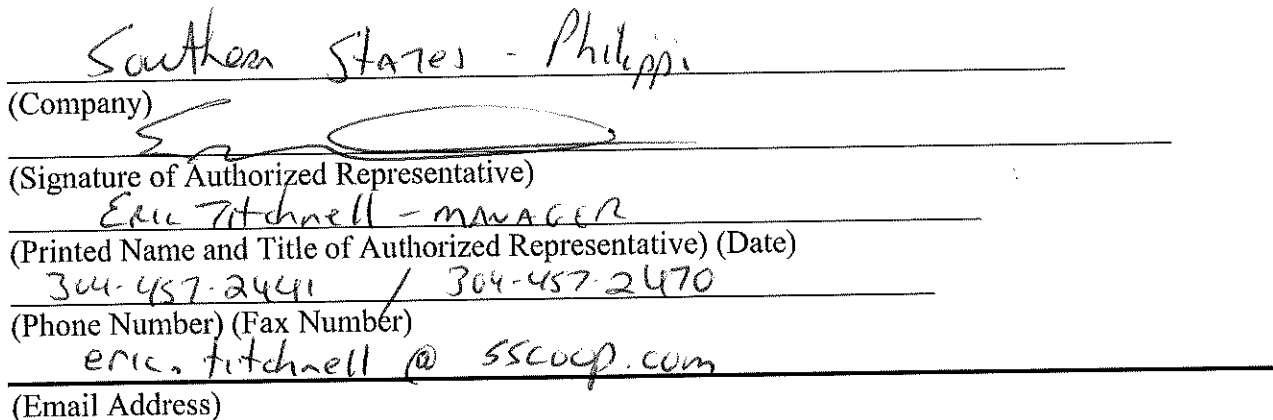 Southern States - Philippi
(Company)
(Signature of Authorized Representative)
Eric Titchnell - MANAGER
(Printed Name and Title of Authorized Representative) (Date)
304-457-2441 / 304-457-2470
(Phone Number) (Fax Number)
eric.titchnell @ sscoop.com
(Email Address)